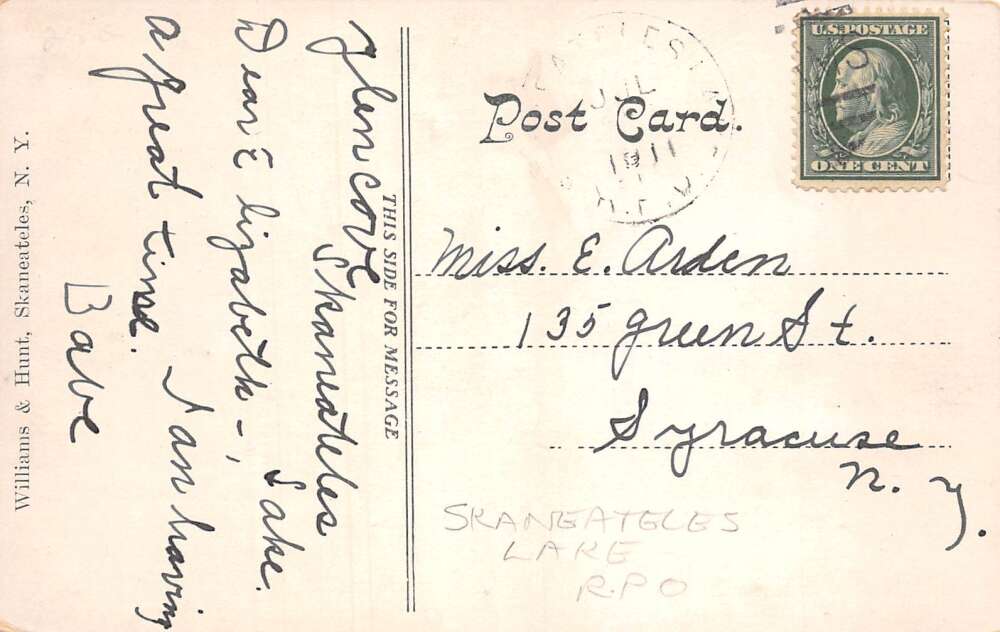 Glencove
Skaneateles
Lake.
Dear Elizabeth-,
I am having
a great time.
Babe
THIS SIDE FOR MESSAGE
Williams & Hunt, Skaneateles, N. Y.
Post Card.
JUL
1911
R.P.O
U.S. POSTAGE
ONE CENT
Miss. E. Arden
135 Green St.
Syracuse
N. Y.
SKANEATELES
LAKE
R.P.O